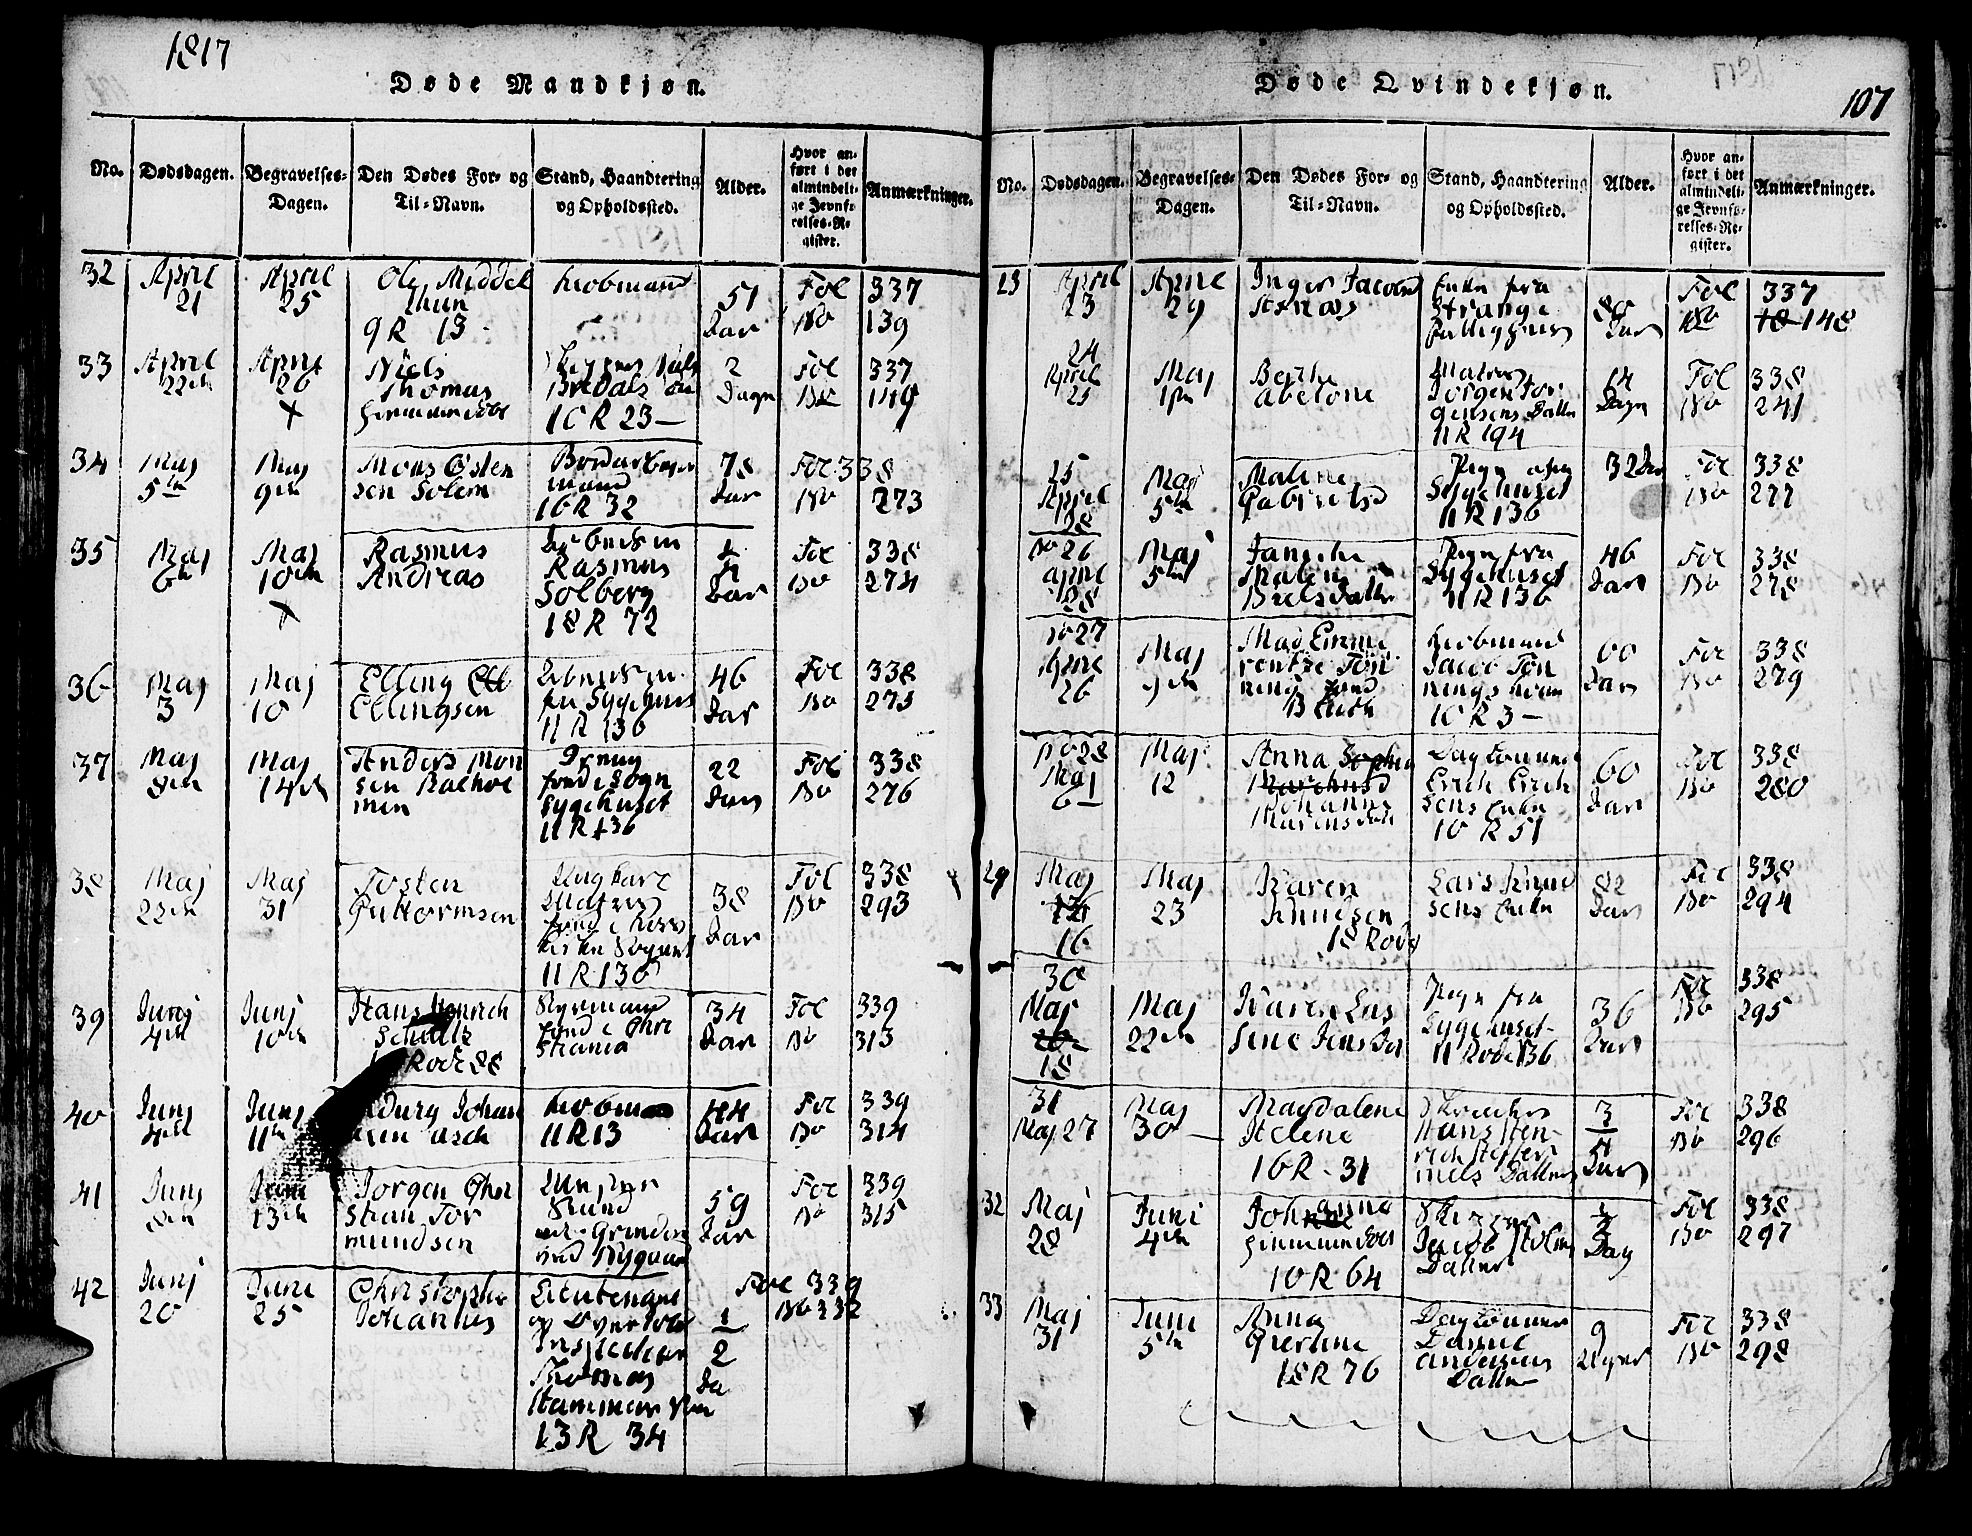 1817
Døde Mandkjøn.
No.
Dødsdagen.
Begravelses-
Dagen.
Den Dødes For- og
Til-Navn.
Stand, Haandtering
og Opholdssted.
Alder.
Hvor an-
ført i det
almindeli-
ge Jevnfø-
relses-Re-
gister.
Anmærkninger.
32
April
21
April
25
Ole Middel
thun
9 R 13
Kiøbmand
51
Aar
Fol 337
No 139
33
April
22de
April
26
+
Niels
Thomas
Hiemmedøbt
Bredals
10 R 23 —
2
Dage
Fol 337
No
34
Maj
5te
Maj
9de
Mons Østen
sen Solem
mand
16 R 32
78
Aar
Fol 338
No 273
35
Maj
6te
Maj
10de
+
Rasmus
Andreas
Rasmus
Solberg
18 R 72
Aar
Fol 338
No 274
36
Maj
3
Maj
10
Elling
Ellingsen
Sygehuset
11 R 136
46
Aar
Fol 338
No 275
37
Maj
8de
Maj
14de
Anders Mon
sen
Dreng
fød i Sogn
Sygehuset
11 R 136
22
Aar
Fol 338
No 276
38
Maj
22de
Maj
31
Tosten
Guttormsen
Ungkarl
Matros
11 R 130
38
Aar
Fol 338
No 293
39
Junj
4de
Junj
10de
Hans Henrich
Schultz
Rode 88
Styrmand
fød i Chri
stiania
34
Aar
Fol 339
No 313
40
Junj
4de
Junj
11te
Johan
Kiøbmand
11 R 13
44
Aar
Fol 339
No 314
41
Junj
8de
Juni
13de
Jørgen Chri
stian Tor
mundsen
ved Nygaard
59
Aar
Fol 339
No 315
42
Junj
20
Juni
25
Christopher
Johannes
Lieutenant
og Overtold
Inspecteur
Thomas
Hammer
13 R 34
1
2
Aa
Fol 339
No 332
1817
107
Døde Qvindekjøn.
No.
Dødsdagen.
Begravelses-
Dagen.
Den Dødes For- og
Til-Navn.
Stand, Haandtering
og Opholdssted.
Alder.
Hvor an-
ført i det
almindeli-
ge Jevnfø-
relses-Re-
gister.
Anmærkninger.
23
April
23
April
29
Inger Jacobsd
Enke fra
Strange
Fattighus
80
Aar
Fol 337
No 148
24
April
25
Maj
1ste
Berthe
Abelone
Matros
Jørgen Jør
gensens Datter
11 R 194
14
Dage
Fol 338
No 241
25
April
28
Maj
5te
Malene
Gabrielsd
Pige
Sygehuset
11 R 136
32 Aar
Fol 338
No 277
No 26
April
28
Maj
5te
Malene
Nielsdatter
Pige fra
Sygehuset
11 R 136
46
Aar
Fol 338
No 278
No 27
April
26
Maj
9de
Mad Emme
rentze Tøn
ning fød
Kiøbmand
Jacob Tøn
nings
10 R 3 —
60
Aar
Fol 338
No 279
No 28
Maj
6
Maj
12
Anna Sophia
Johannes
Daglønner
Erich Erich
sens Enke
10 R 51
60
Aar
Fol 338
No 280
29
Maj
16
Maj
23
Karen
Knudsen
18 Rode
Lars Knud
sens Enke
82
Aar
Fol 338
No 294
30
Maj
18
Maj
22de
Karen Las
sine Jensdat
Pige fra
Sygehuset
11 Rode 136
36
Aar
Fol 338
No 295
31
Maj 27
Maj
30 —
Magdalene
Helene
16 R. 31
Hans Hen
rich
Datter
3
4
Aar
Fol 338
No 296
32
Maj
28
Juni
4de
Johanna
Hiemmedøbt
10 R 64
Skipper
Jacob Holms
Datter
1
2
Dag
Fol 338
No 297
33
Maj
31
Juni
5te
Anna
Giertine
18 R 76
Daglønner
Daniel
Andersens
Datter
9
Uger
Fol 338
No 298